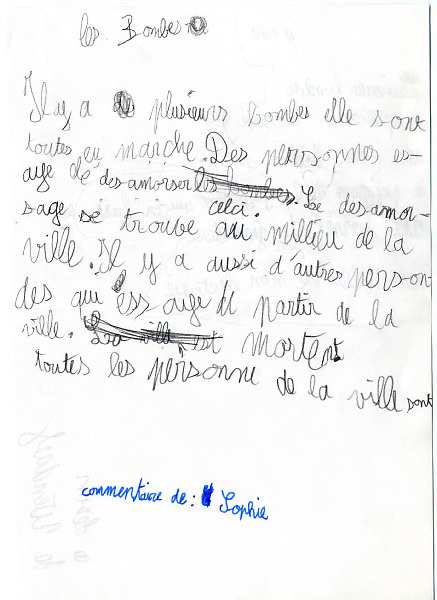 les Bombes
Il y a plusieurs bombes elle sont
toutes en marche. Des personnes es-
aye de desamorser les bombes. Le desamor-
celci.
sage se trouve au millieu de la
ville. Il y a aussi d'autres person
des qui éss aye di partir de la
ville. est Mortent
toutes les personne de la ville sont
commentaire de : Sophie